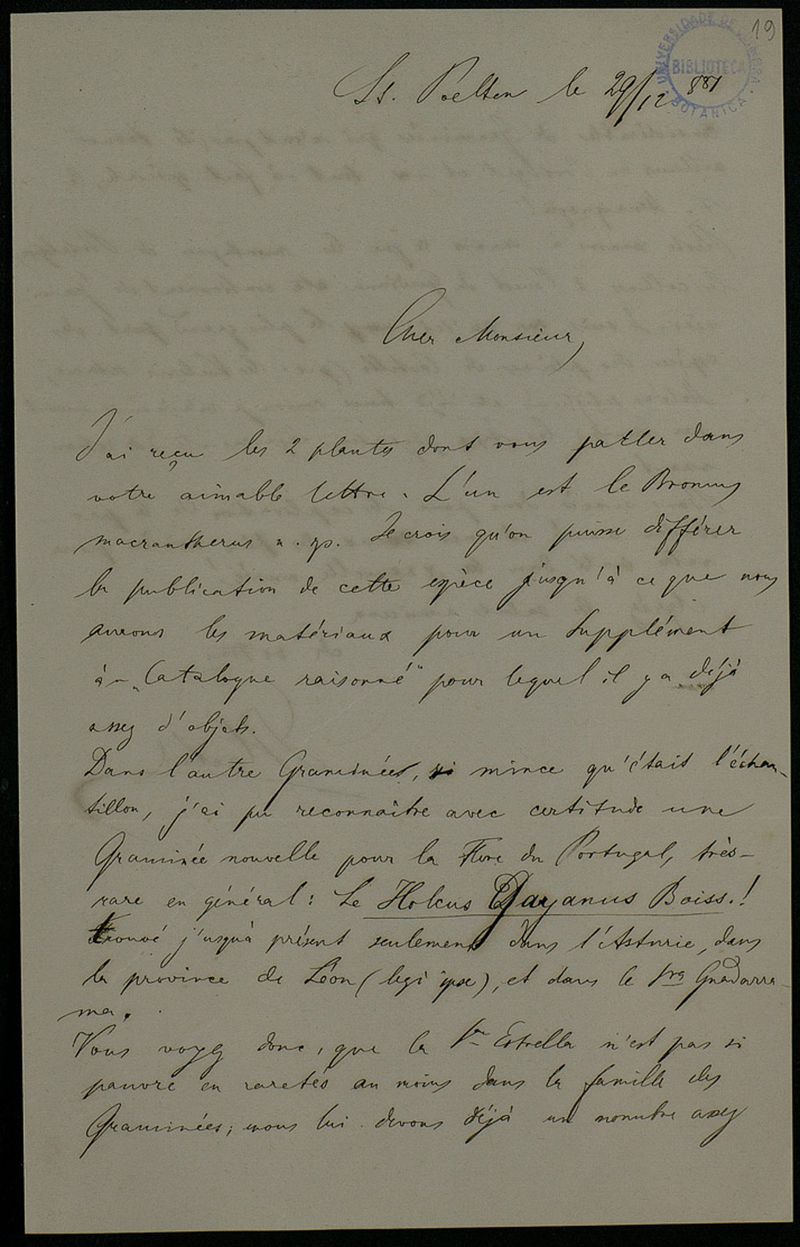 19
UNIVERSIDADE DE COIMBRA
BIBLIOTECA
BOTANICA
St. Poelten le 29/12 881
Cher Monsieur,
J'ai reçu les 2 plantes dont vous parler dans
votre aimable lettre. L'un est le Bromus
macrantherus n. sp. Je crois qu'on puisse différer
la publication de cette espèce jusqu'à ce que nous
aurons les matériaux pour un Supplément
à „Catalogue raisonné" pour lequel il y a déjà
assez d'objets.
Dans l'autre Graminées, si mince qu'était l'échan-
tillon, j'ai pu reconnaître avec certitude une
Graminée nouvelle pour la Flore du Portugal, très-
rare en général: Le Holcus Gayanus Boiss.!
trouvé j'usqu'à présent seulement dans l'Asturie, dans
la province de Léon (legi ipse), et dans le Sra Guadarra-
ma.
Vous voyez donc, que la Sra Estrella n'est pas si
pauvre en raretés au moins dans la famille des
Graminées; nous lui devons déjà un nombre assez